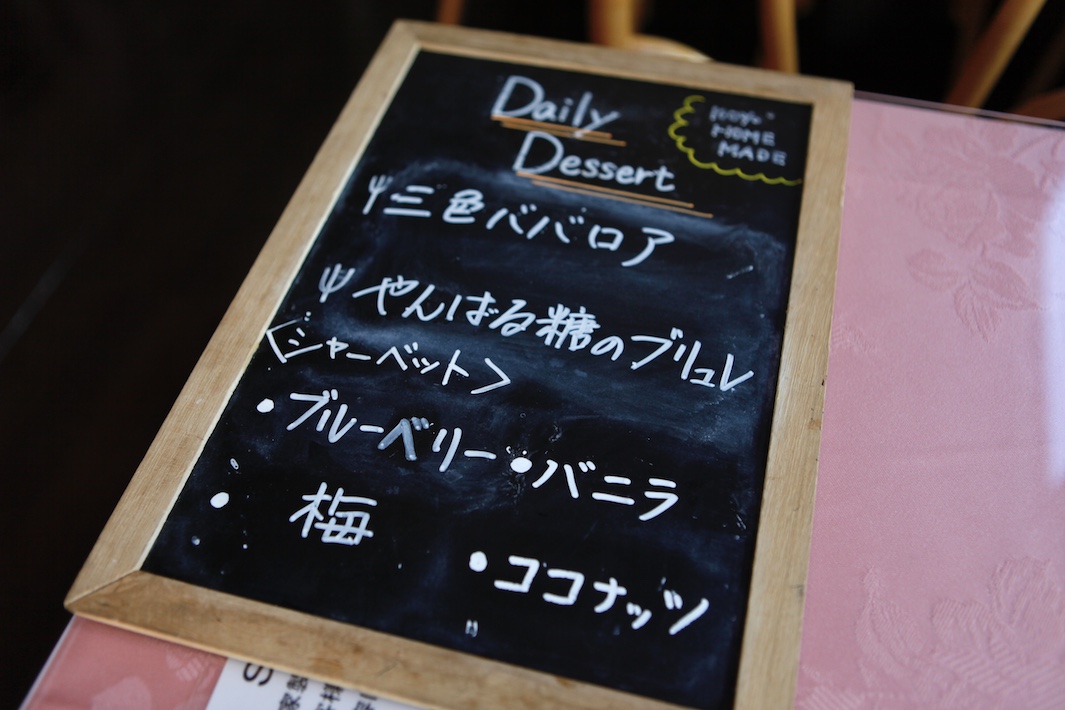 Daily
Dessert
100%
HOME
MADE
三色ババロア
やんばる糖のブリュレ
<シャーベット>
・ブルーベリー ・バニラ
・梅
・ココナッツ
S